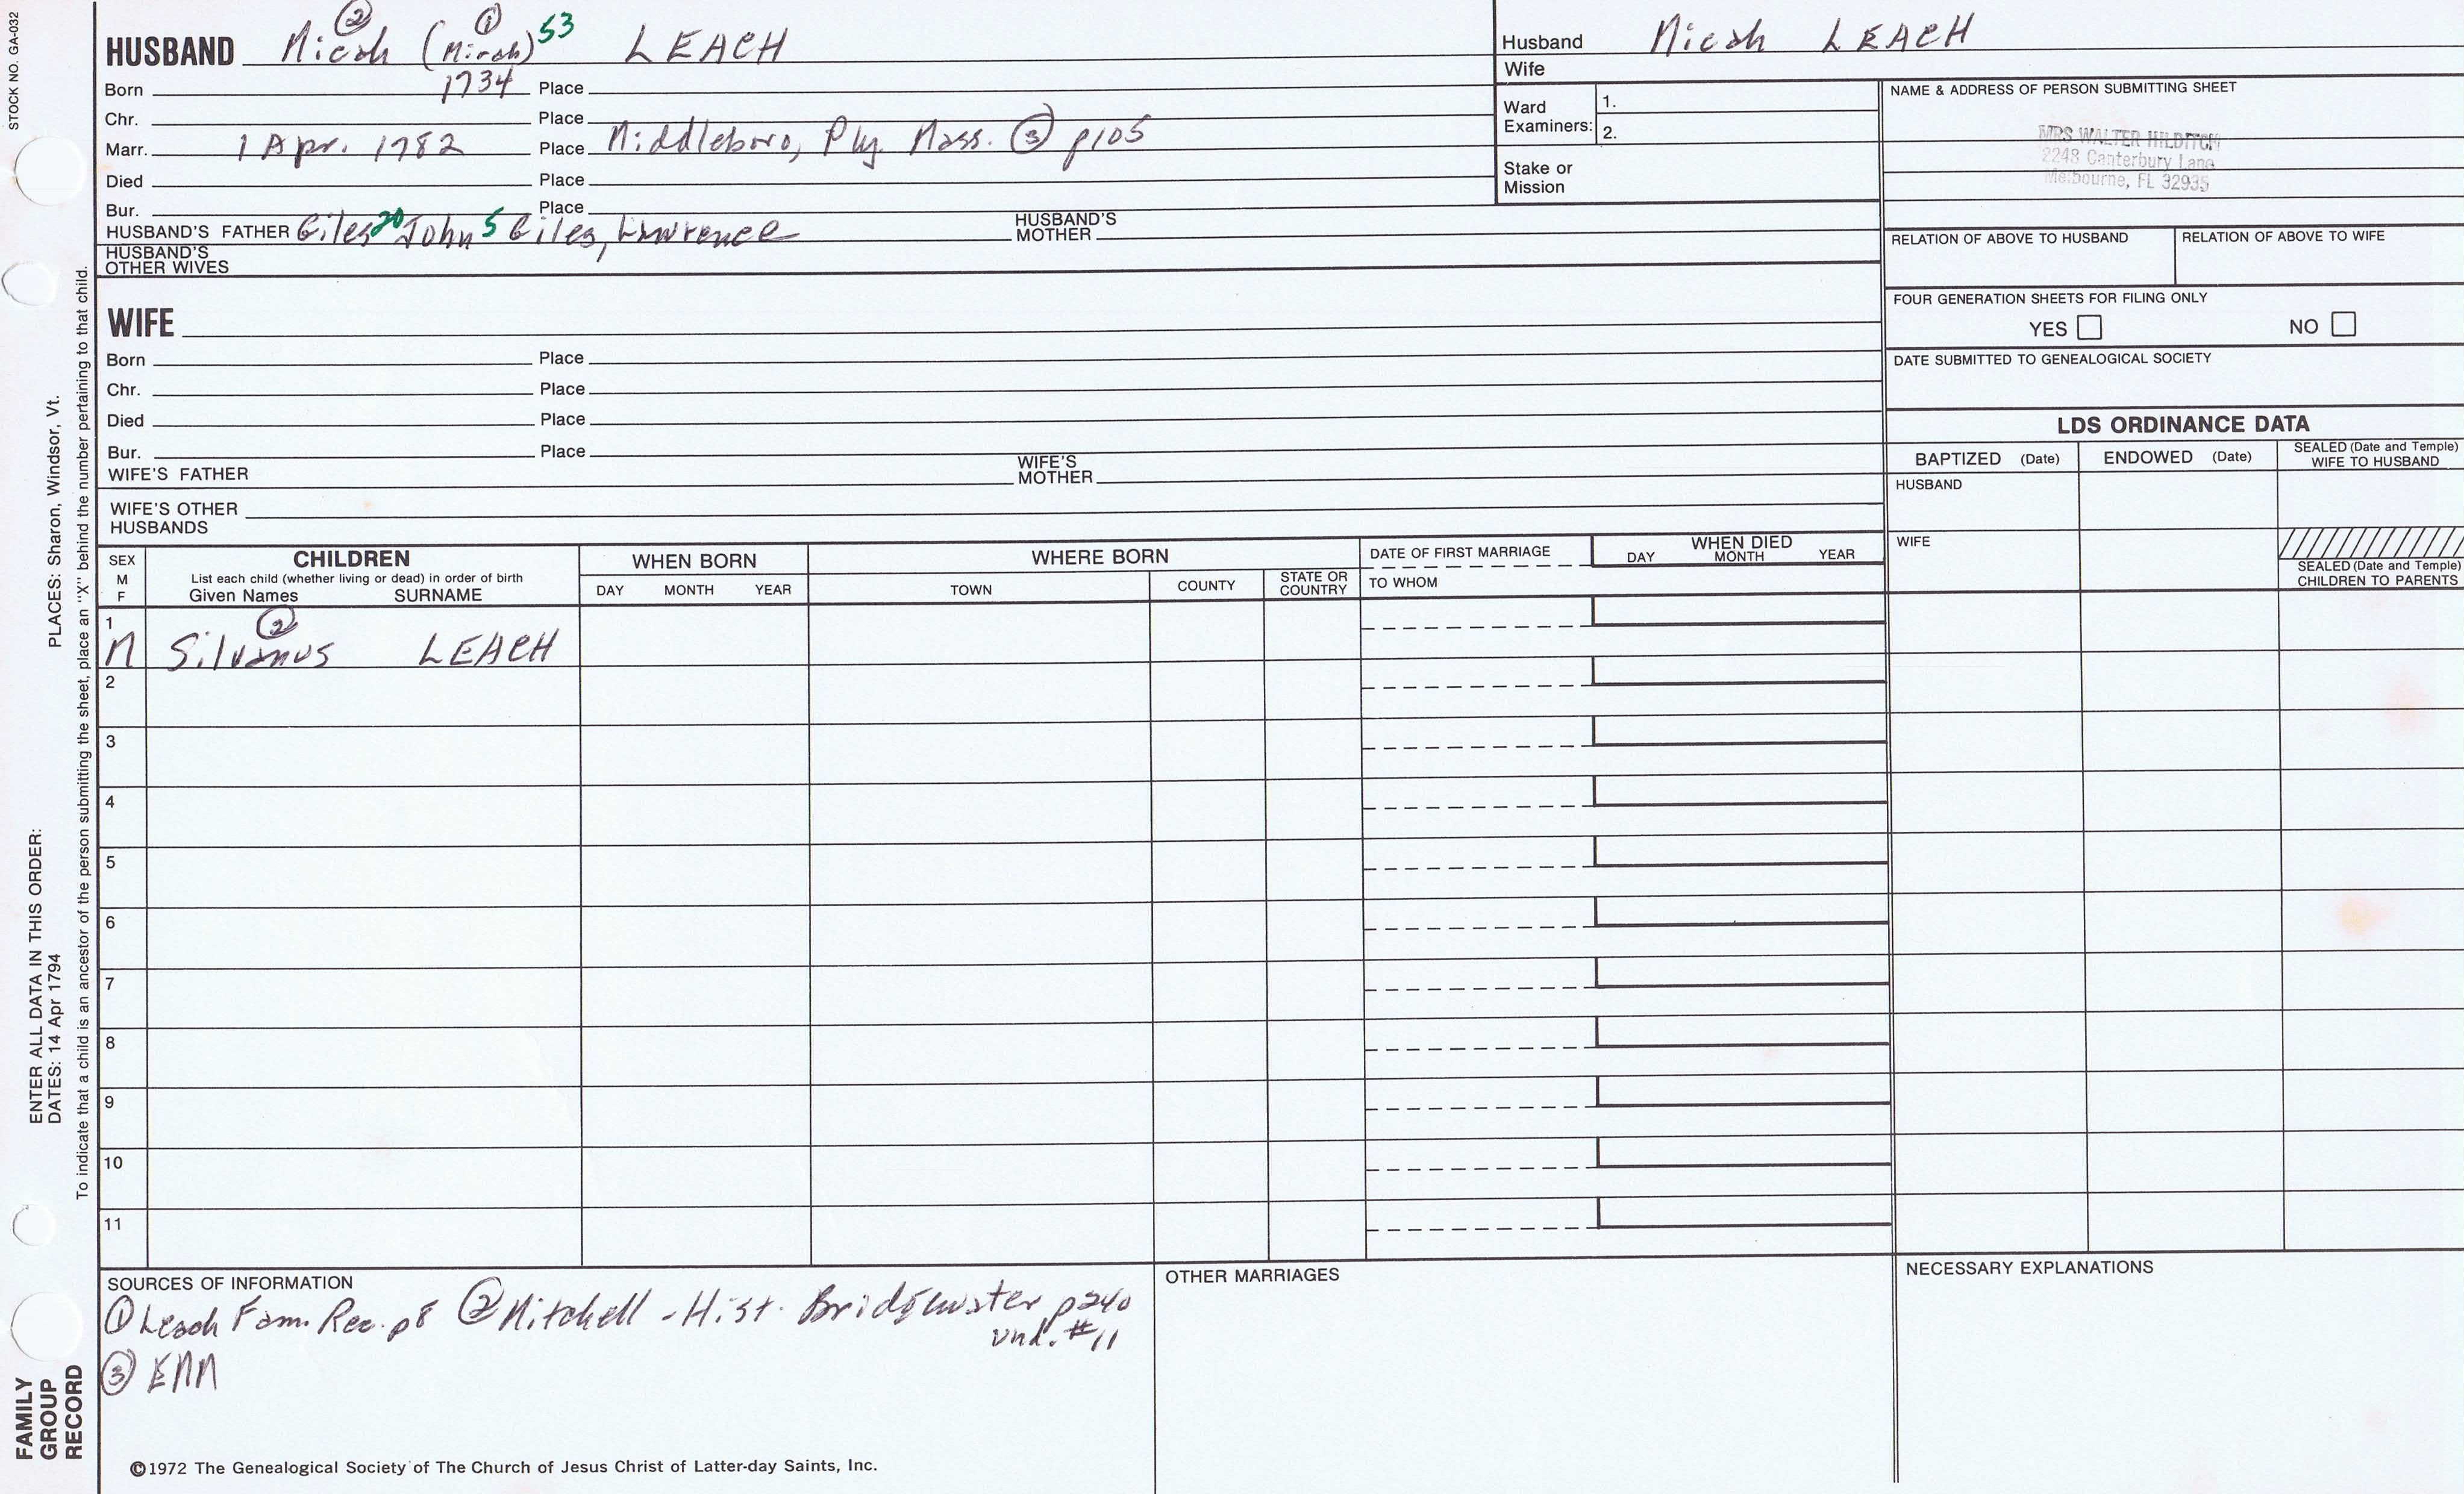 STOCK NO. GA-032
② ①
HUSBAND Micah (Mirah) 53 LEACH
Born 1734 Place
Chr. Place
Marr. 1 Apr. 1782 Place Middleboro, Ply. Mass. ③ p105
Died Place
Bur. Place
HUSBAND'S FATHER Giles 20 John 5 Giles, Lawrence HUSBAND'S MOTHER
HUSBAND'S OTHER WIVES
Husband Micah LEACH
Wife
Ward Examiners: 1.
2.
Stake or Mission
NAME & ADDRESS OF PERSON SUBMITTING SHEET
MRS WALTER HILDITCH
2248 Canterbury Lane
Melbourne, FL 32935
RELATION OF ABOVE TO HUSBAND RELATION OF ABOVE TO WIFE
FOUR GENERATION SHEETS FOR FILING ONLY
YES NO
DATE SUBMITTED TO GENEALOGICAL SOCIETY
WIFE
Born Place
Chr. Place
Died Place
Bur. Place
WIFE'S FATHER WIFE'S MOTHER
WIFE'S OTHER HUSBANDS
LDS ORDINANCE DATA
BAPTIZED (Date) ENDOWED (Date) SEALED (Date and Temple) WIFE TO HUSBAND
HUSBAND
WIFE
SEALED (Date and Temple) CHILDREN TO PARENTS
SEX M F
CHILDREN
List each child (whether living or dead) in order of birth
Given Names SURNAME
WHEN BORN
DAY MONTH YEAR
WHERE BORN
TOWN COUNTY STATE OR COUNTRY
DATE OF FIRST MARRIAGE
TO WHOM
WHEN DIED
DAY MONTH YEAR
1 ②
M Silvanus LEACH
2
3
4
5
6
7
8
9
10
11
SOURCES OF INFORMATION
① Leach Fam. Rec. p8 ② Mitchell - Hist. Bridgewater p240
und. #11
③ EMM
OTHER MARRIAGES
NECESSARY EXPLANATIONS
©1972 The Genealogical Society of The Church of Jesus Christ of Latter-day Saints, Inc.
FAMILY GROUP RECORD
ENTER ALL DATA IN THIS ORDER:
DATES: 14 Apr 1794
PLACES: Sharon, Windsor, Vt.
To indicate that a child is an ancestor of the person submitting the sheet, place an "X" behind the number pertaining to that child.